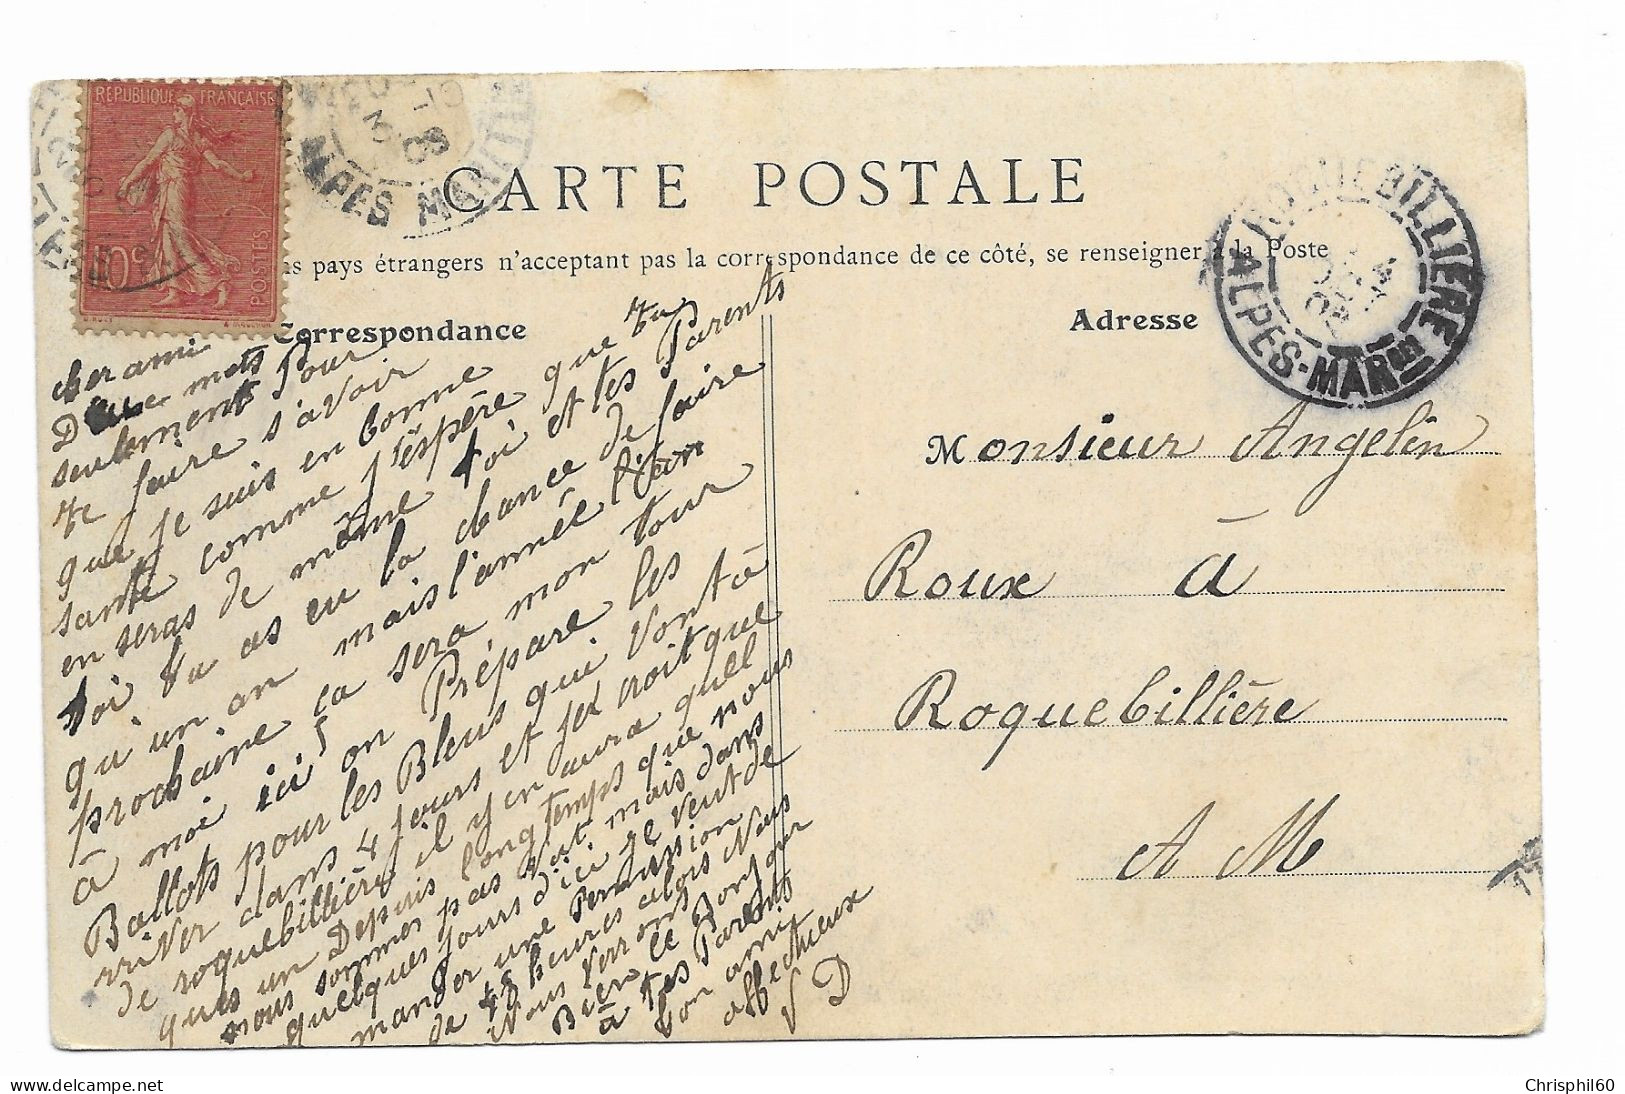 RÉPUBLIQUE FRANÇAISE
10c
POSTES
ALPES MARIT
CARTE POSTALE
s pays étrangers n'acceptant pas la correspondance de ce côté, se renseigner à la Poste
Correspondance
Adresse
ROQUEBILLIERE
ALPES-MAR
cher ami
Deux mots
seulement Pour
te faire s'avoir
que je suis en bonne
santé comme j'éspère que tu
en seras de même toi et tes Parents
toi tu as eu la chance de faire
qu'un an mais l'année l'éon
prochaine ça sera mon tour
à moi ici on Prépare les
Ballots pour les Bleus qui vont à
rriver dans 4 jours et je croit que
de roquebillière il y en aura quel
ques un Depuis longtemps que nous
nous sommes pas vut mais dans
quelques jours d'ici je veut de
mander une Permission
de 48 heures alors Nous
Nous verrons
Bien le Bonjour
à tes Parents
ton ami
affectueux
V D
Monsieur Angelin
Roux à
Roquebillière
A M
Chrisphil60